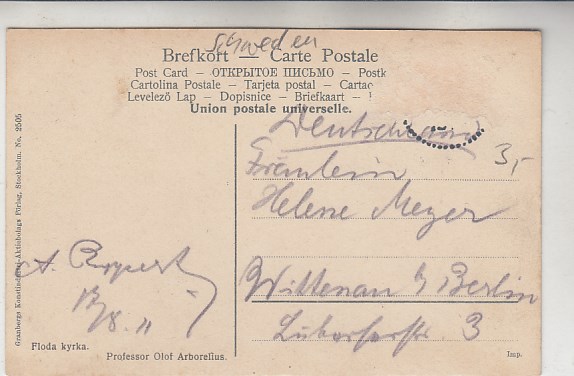 Schweden
Brefkort — Carte Postale
Post Card – ОТКРЫТОЕ ПИСЬМО – Postk
Cartolina Postale – Tarjeta postal – Cartao
Levelező Lap – Dopisnice – Briefkaart –
Union postale universelle.
Deutschland
3,-
Fräulein
Helene Meyer
Wittenau b/ Berlin
3
A. Ruppert
8. 11
Floda kyrka.
Professor Olof Arborelius.
Imp.
Granbergs Konstindustri-Aktiebolags Förlag, Stockholm. No. 2506